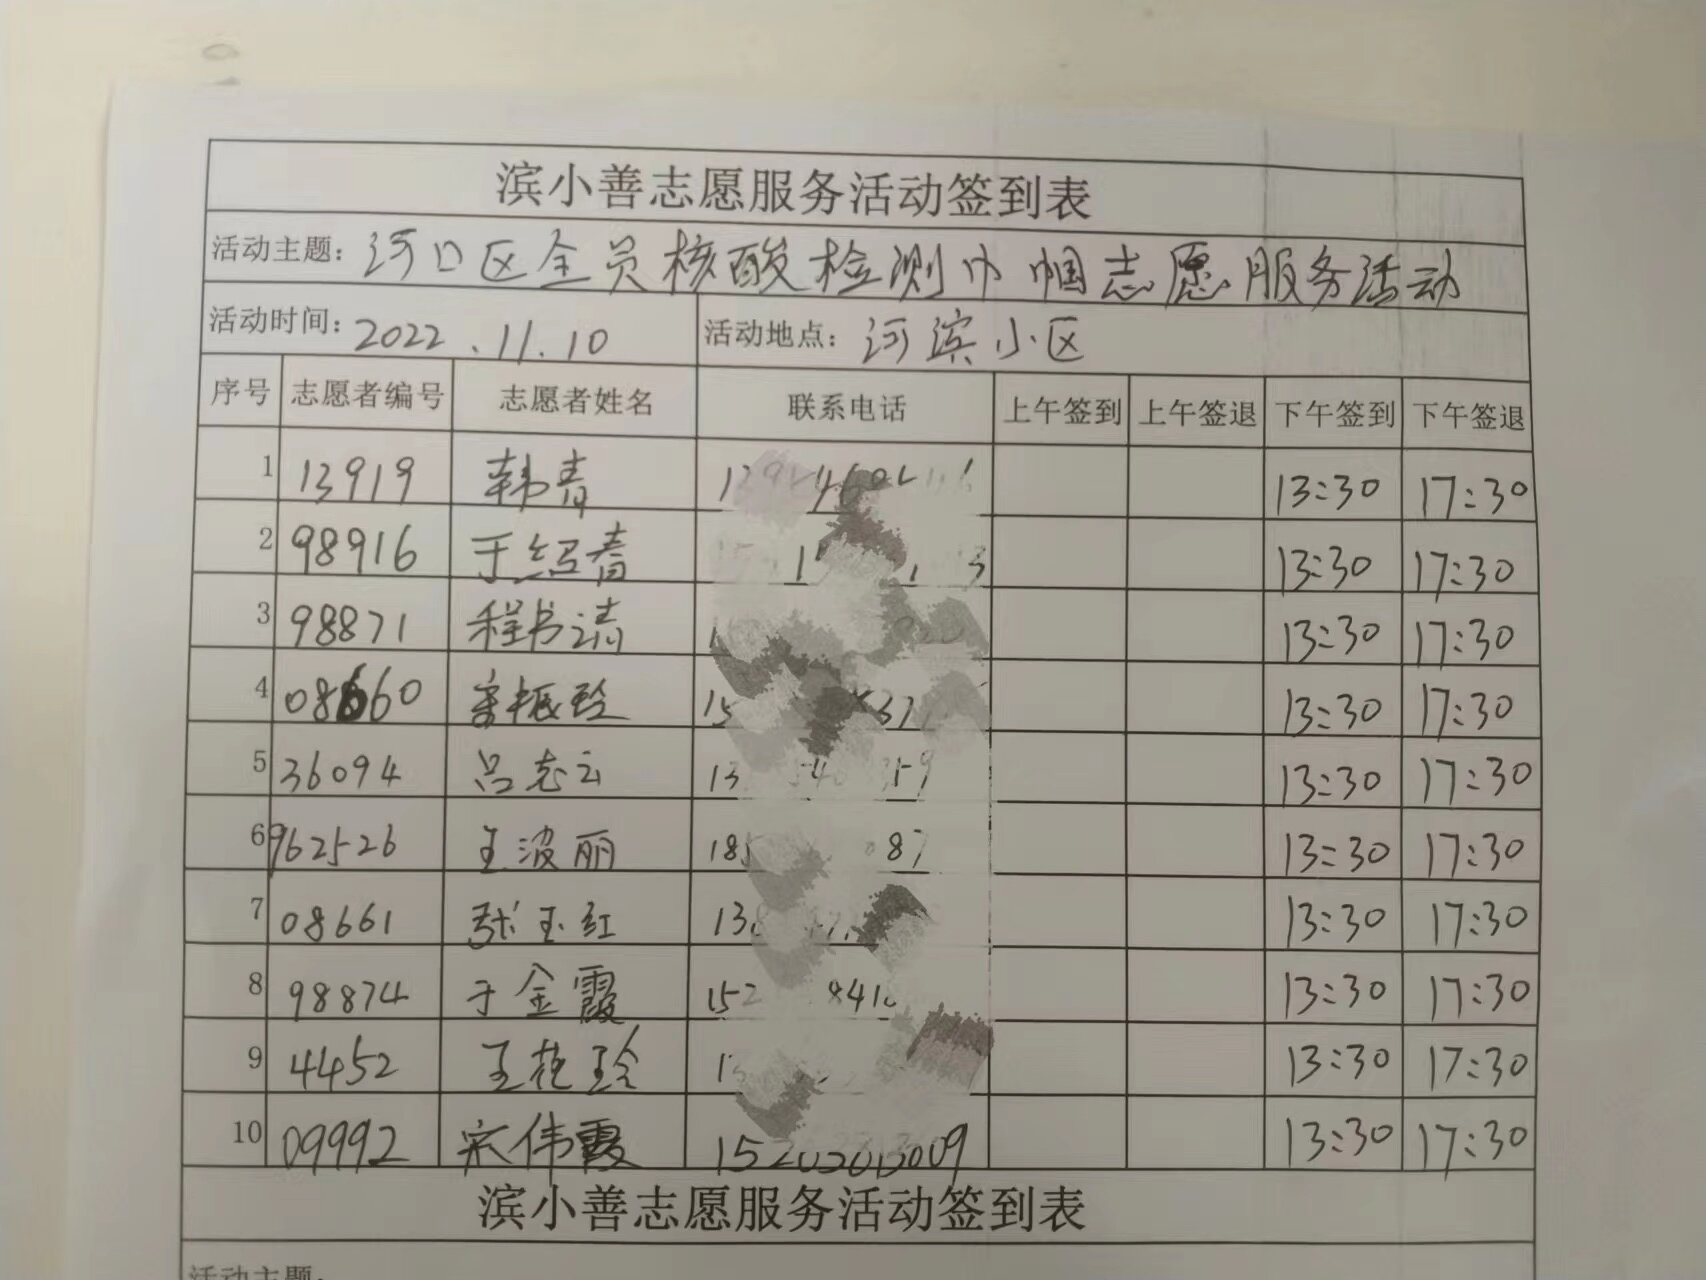 滨小善志愿服务活动签到表
活动主题: 河口区全员核酸检测巾帼志愿服务活动
活动时间: 2022.11.10 活动地点: 河滨小区
序号 志愿者编号 志愿者姓名 联系电话 上午签到 上午签退 下午签到 下午签退
1 13919 韩青 13:30 17:30
2 98916 于绍青 13:30 17:30
3 98871 程书清 13:30 17:30
4 08660 李振玲 15 13:30 17:30
5 36094 吕志云 13 13:30 17:30
6 962526 王波丽 185 87 13:30 17:30
7 08661 张玉红 138 13:30 17:30
8 98874 于金霞 152 13:30 17:30
9 4452 王艳玲 13:30 17:30
10 09992 宋伟霞 13:30 17:30
滨小善志愿服务活动签到表
活动主题: